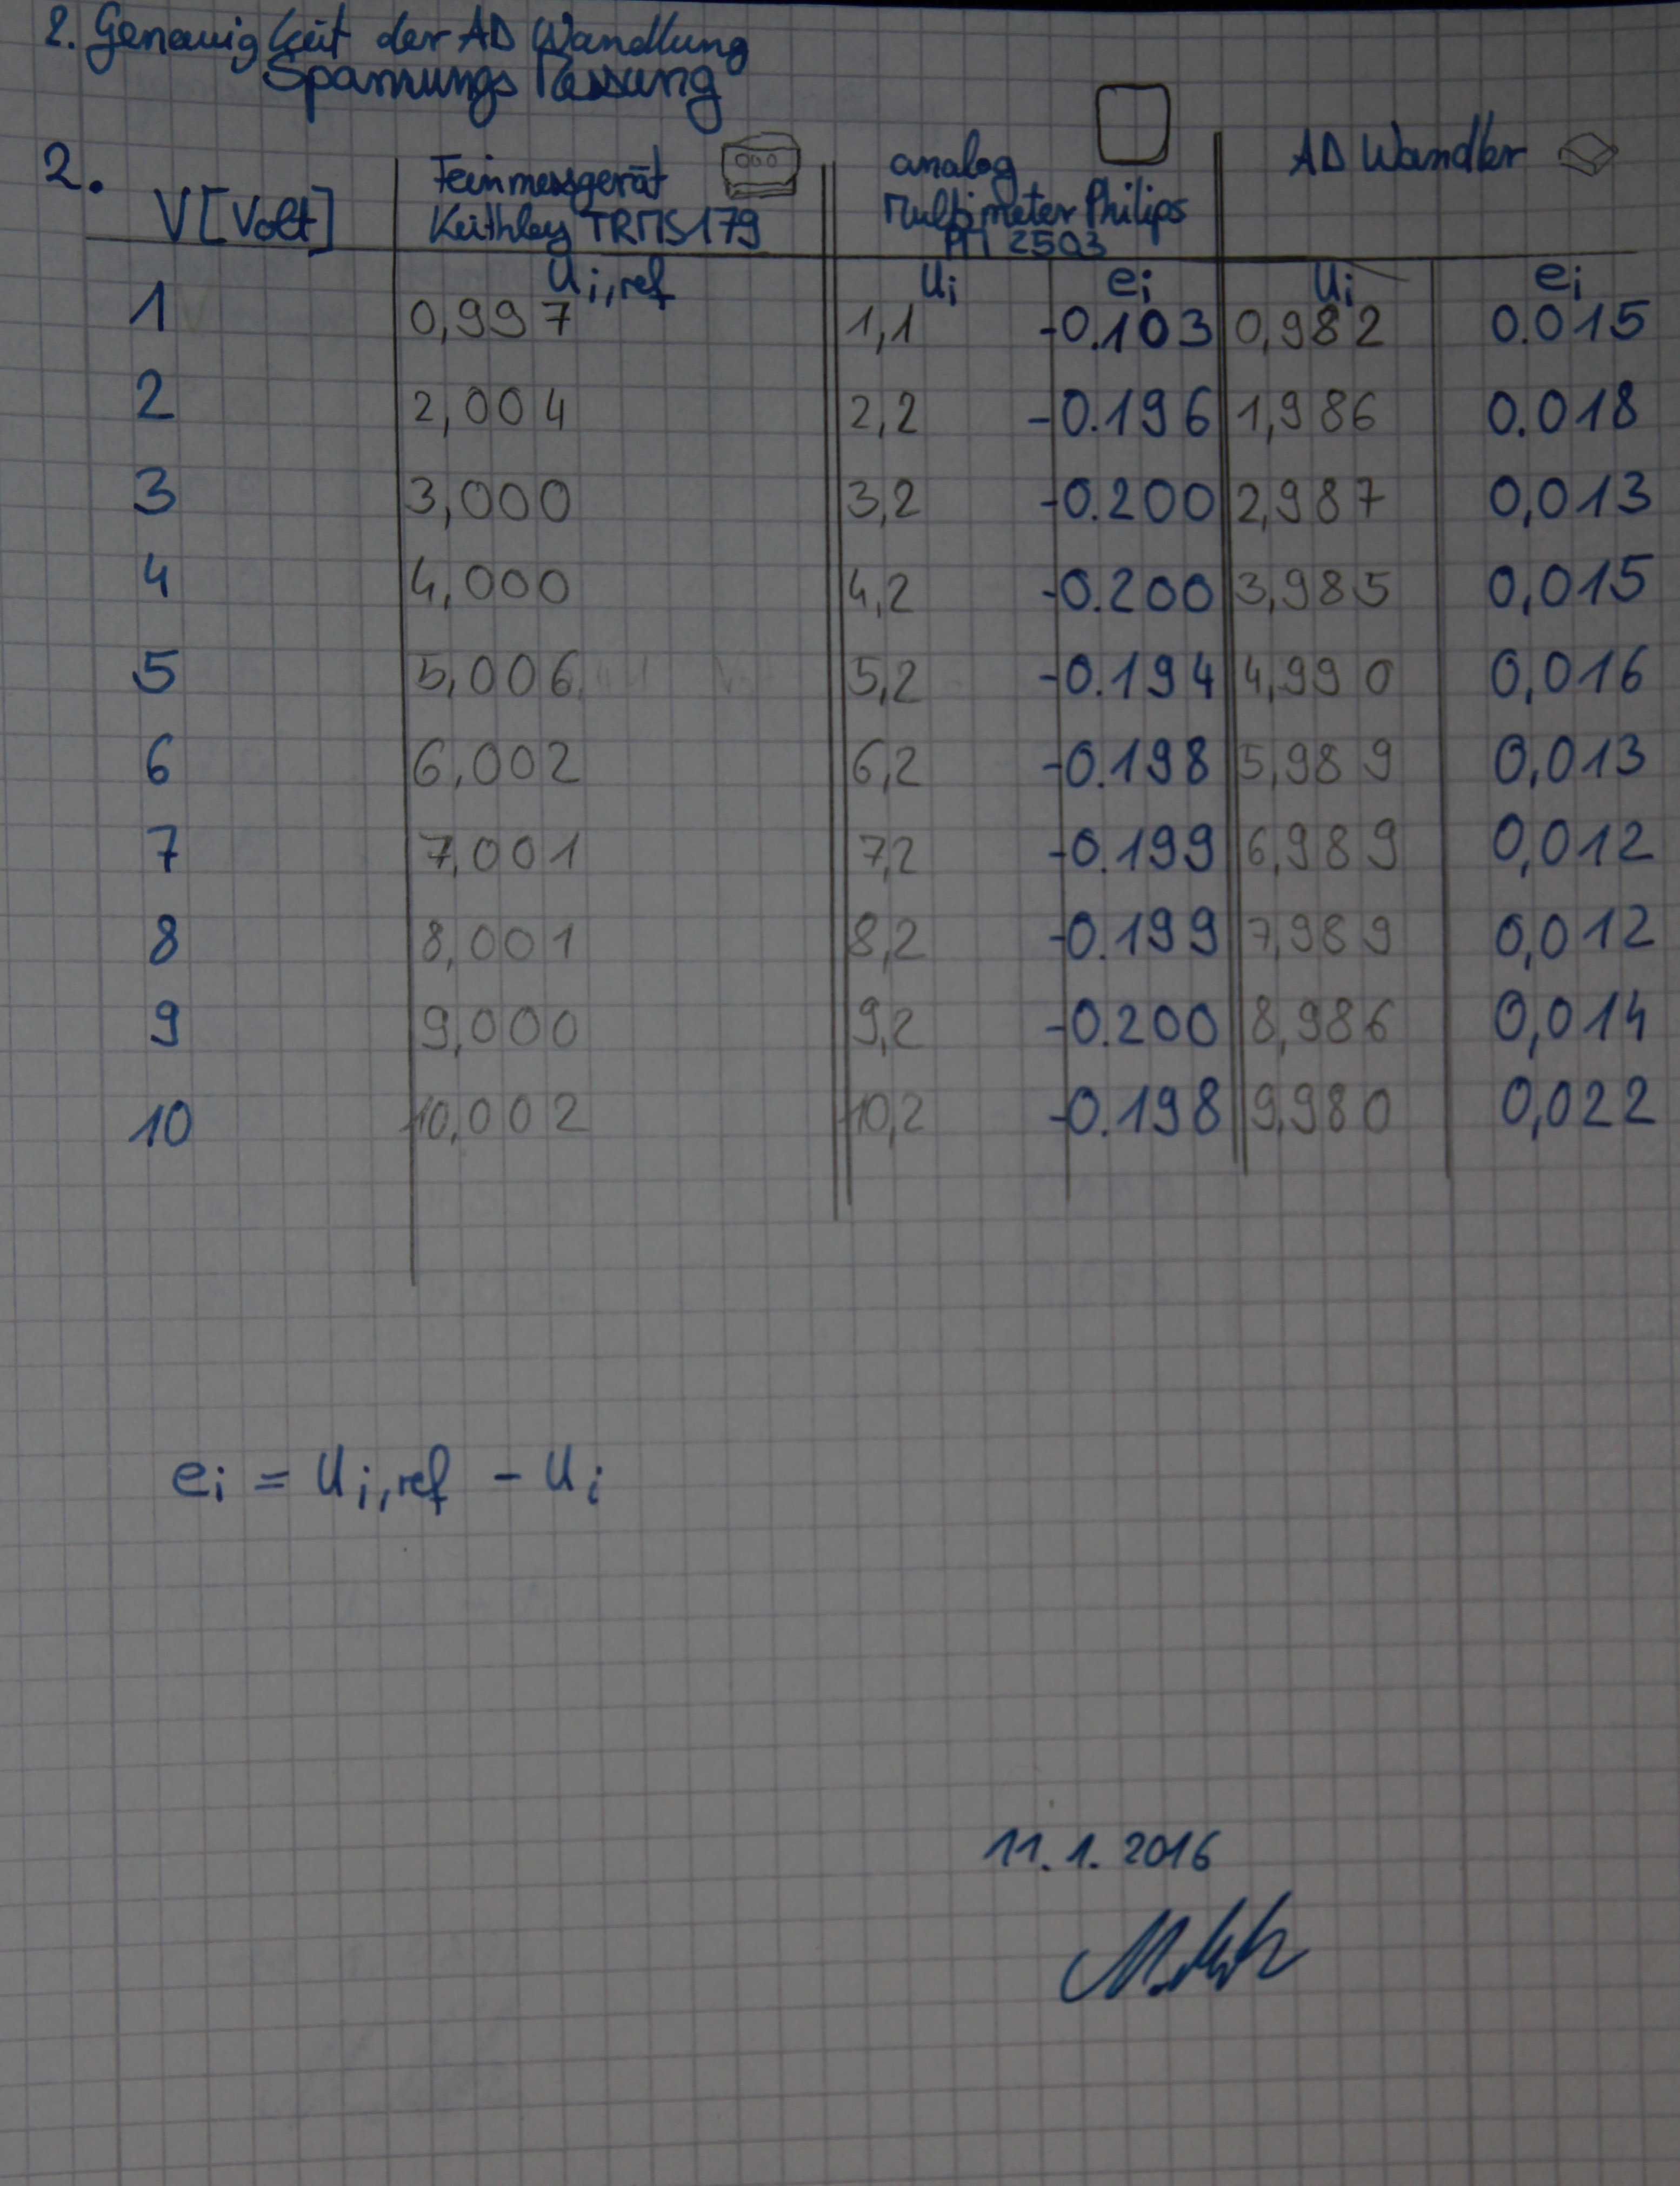 2. Genauigkeit der AD Wandlung
Spannungs Messung
2. V [Volt] Feinmessgerät Keithley TRMS179 analog Multimeter Philips PM 2503 AD Wandler
Ui,ref Ui ei Ui ei
1 0,997 1,1 -0.103 0,982 0.015
2 2,004 2,2 -0.196 1,986 0.018
3 3,000 3,2 -0.200 2,987 0,013
4 4,000 4,2 -0.200 3,985 0,015
5 5,006 5,2 -0.194 4,990 0,016
6 6,002 6,2 -0.198 5,989 0,013
7 7,001 7,2 -0.199 6,989 0,012
8 8,001 8,2 -0.199 7,989 0,012
9 9,000 9,2 -0.200 8,986 0,014
10 10,002 10,2 -0.198 9,980 0,022
ei = Ui,ref - Ui
11.1.2016